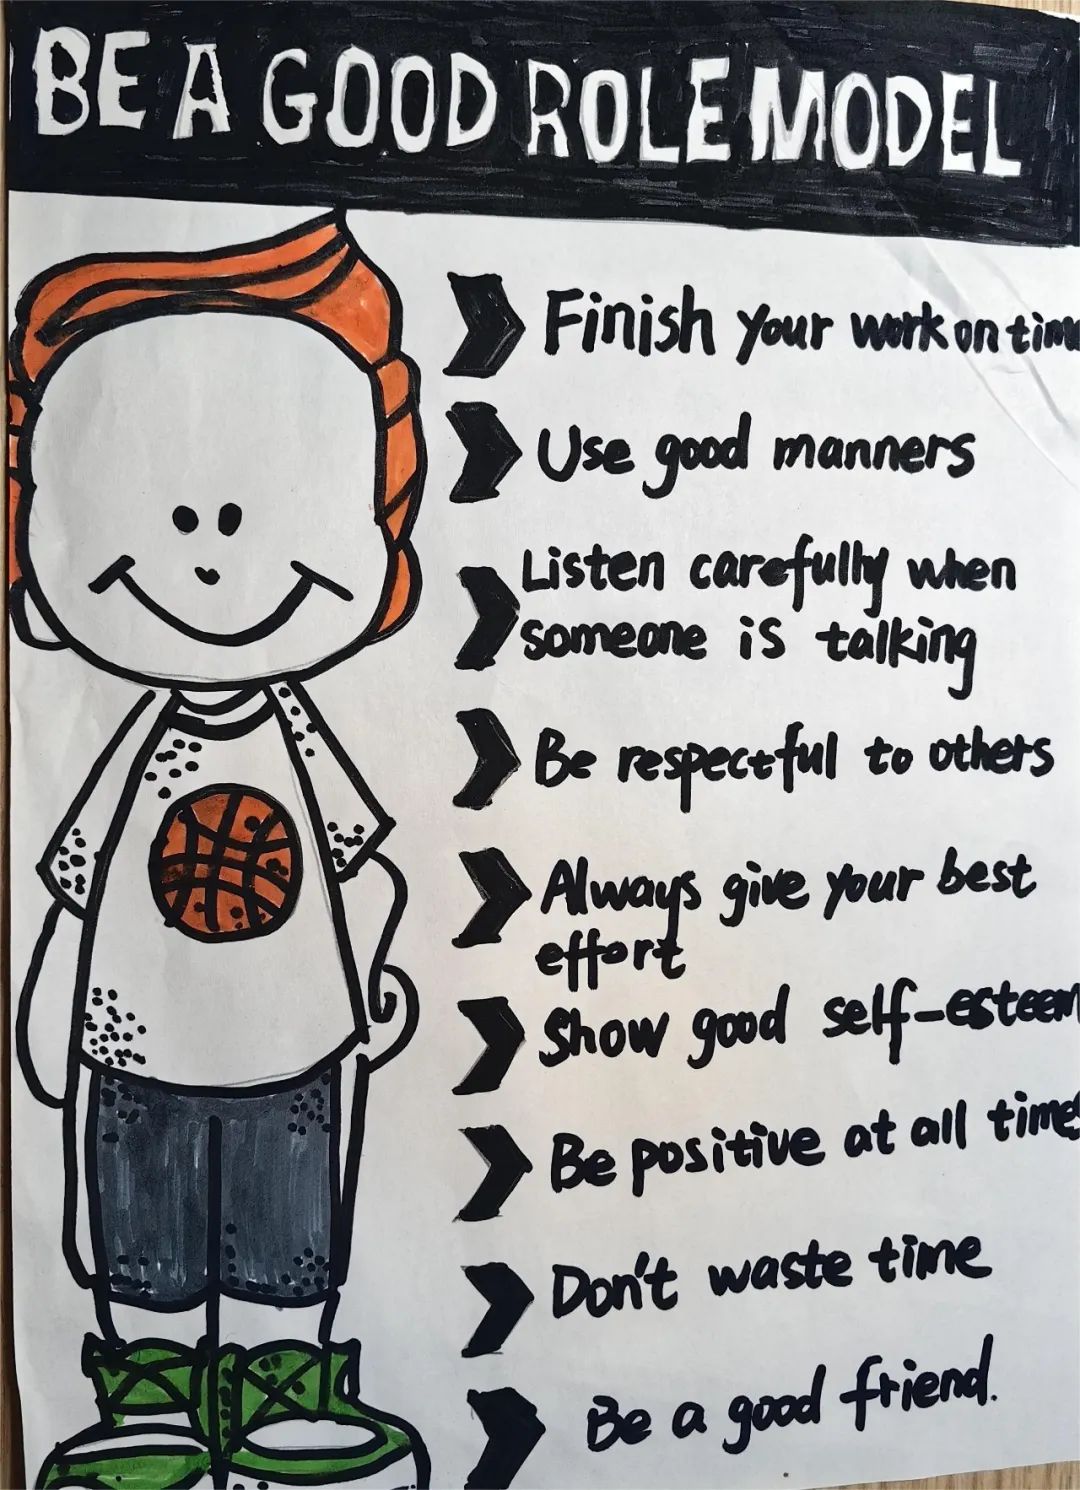 BE A GOOD ROLE MODEL
Finish your work on time
Use good manners
Listen carefully when
someone is talking
Be respectful to others
Always give your best
effort
Show good self-esteem
Be positive at all time
Don't waste time
Be a good friend.